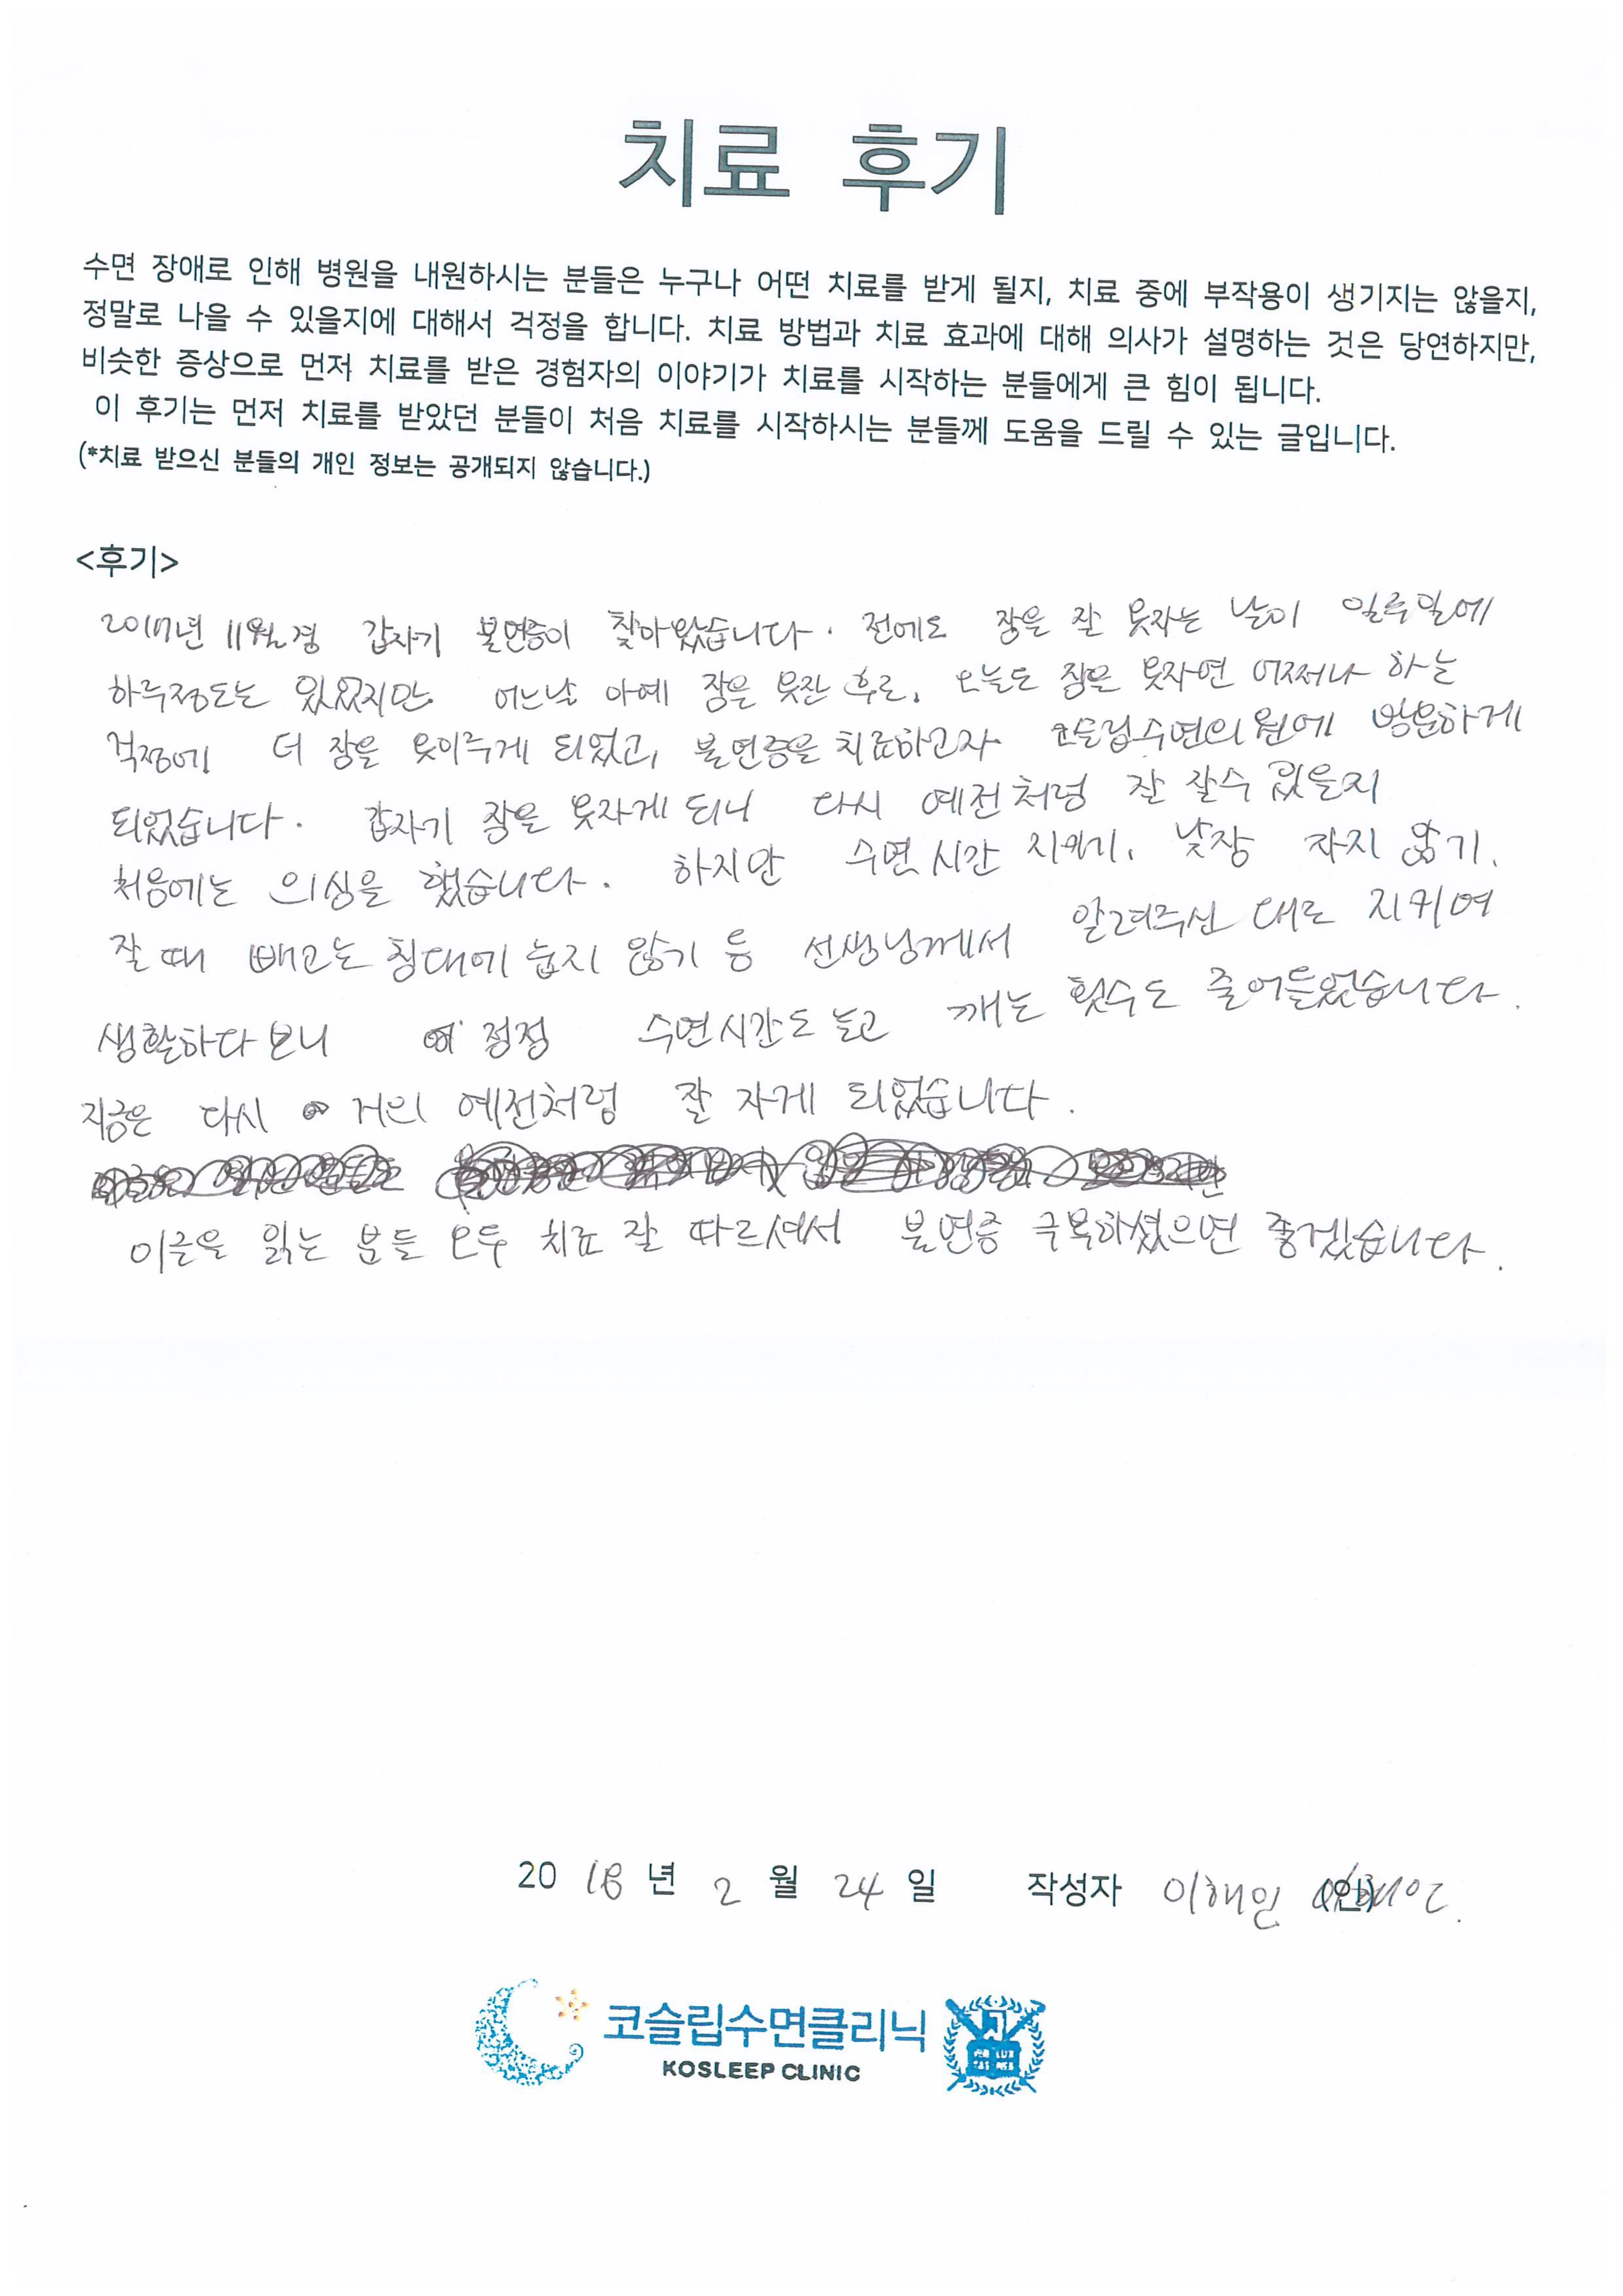 치료 후기
수면 장애로 인해 병원을 내원하시는 분들은 누구나 어떤 치료를 받게 될지, 치료 중에 부작용이 생기지는 않을지,
정말로 나을 수 있을지에 대해서 걱정을 합니다. 치료 방법과 치료 효과에 대해 의사가 설명하는 것은 당연하지만,
비슷한 증상으로 먼저 치료를 받은 경험자의 이야기가 치료를 시작하는 분들에게 큰 힘이 됩니다.
이 후기는 먼저 치료를 받았던 분들이 처음 치료를 시작하시는 분들께 도움을 드릴 수 있는 글입니다.
(*치료 받으신 분들의 개인 정보는 공개되지 않습니다.)
<후기>
2017년 11월경 갑자기 불면증이 찾아왔습니다. 전에도 잠을 잘 못자는 날이 일주일에
하루정도는 있었지만 어느날 아예 잠을 못잔 후로, 오늘도 잠을 못자면 어쩌나 하는
걱정에 더 잠을 못이루게 되었고, 불면증을 치료하고자 코슬립수면의원에 방문하게
되었습니다. 갑자기 잠을 못자게 되니 다시 예전처럼 잘 잘수 있을지
처음에는 의심을 했습니다. 하지만 수면 시간 지키기, 낮잠 자지 않기,
잘 때 빼고는 침대에 눕지 않기 등 선생님께서 알려주신 대로 지키며
생활하다보니 점점 수면시간도 늘고 깨는 횟수도 줄어들었습니다.
지금은 다시 거의 예전처럼 잘 자게 되었습니다.
이글을 읽는 분들 모두 치료 잘 따르셔서 불면증 극복하셨으면 좋겠습니다.
2018년 2월 24일 작성자 이해인 (인)
코슬립수면클리닉
KOSLEEP CLINIC